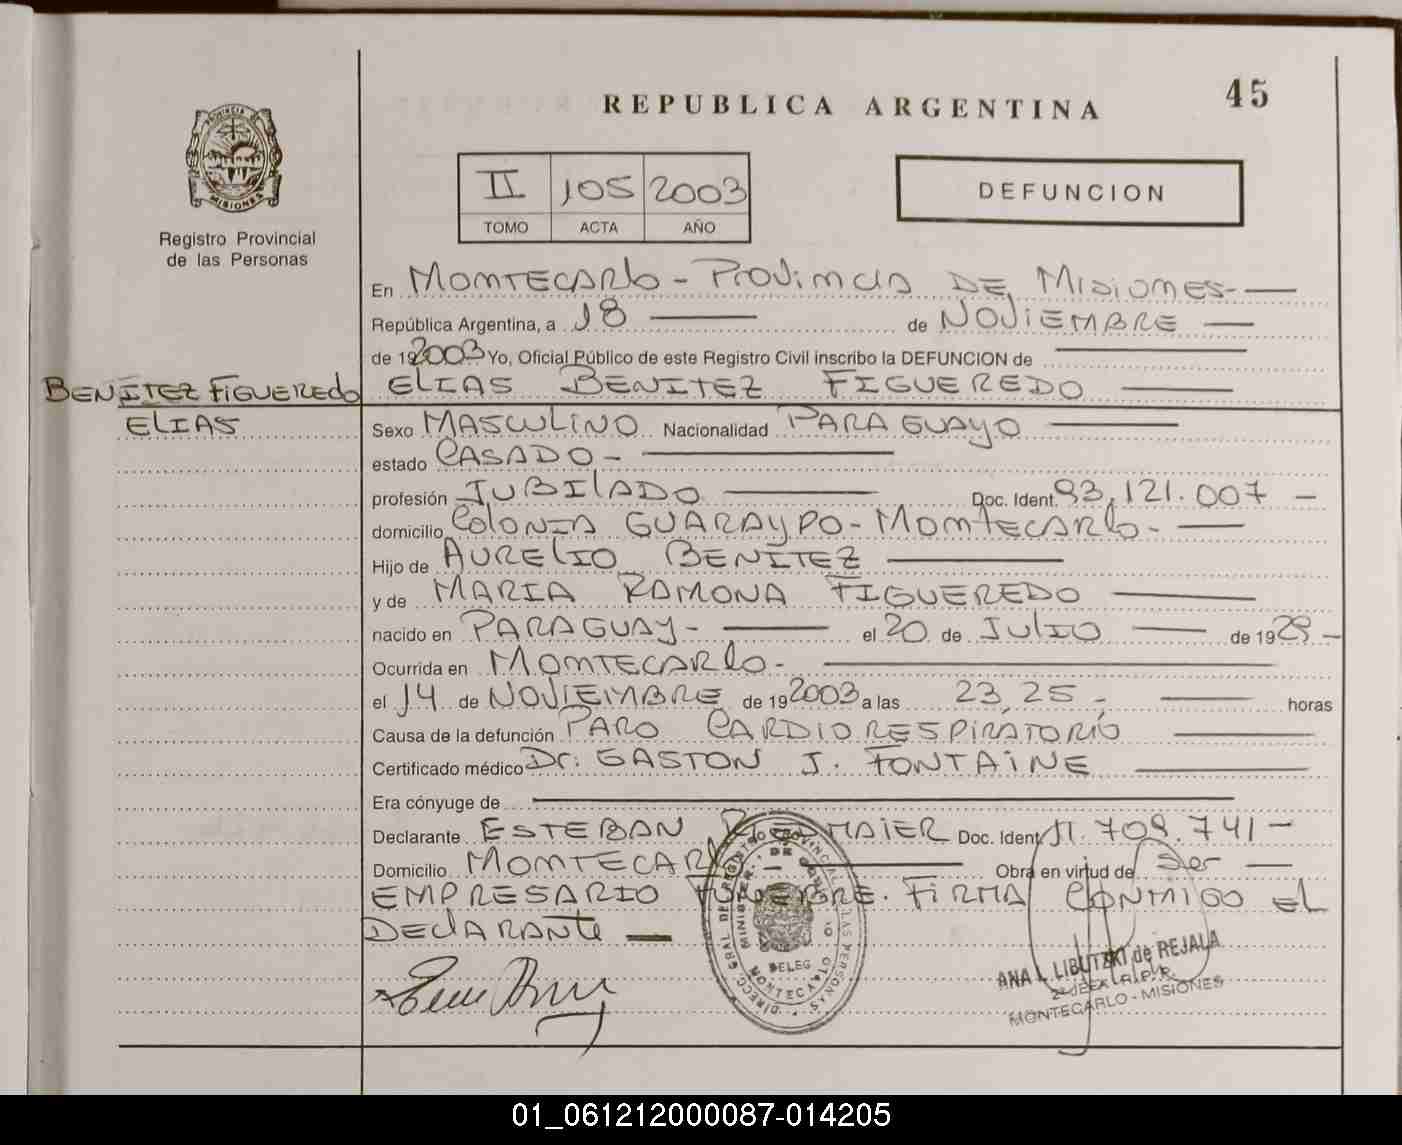 45
REPUBLICA ARGENTINA
PROVINCIA DE
MISIONES
Registro Provincial
de las Personas
II 105 2003
TOMO ACTA AÑO
DEFUNCION
En MONTECARLO - PROVINCIA DE MISIONES-
República Argentina, a 18 de NOVIEMBRE
de 19 2003 Yo, Oficial Público de este Registro Civil inscribo la DEFUNCION de
BENÍTEZ FIGUEREDO
ELIAS
ELIAS BENITEZ FIGUEREDO
Sexo MASCULINO Nacionalidad PARAGUAYO
estado CASADO -
profesión JUBILADO Doc. Ident. 93,121.007 -
domicilio COLONIA GUARAYPO - MONTECARLO -
Hijo de AURELIO BENÍTEZ
y de MARIA RAMONA FIGUEREDO
nacido en PARAGUAY - el 20 de JULIO de 1929 -
Ocurrida en MONTECARLO -
el 14 de NOVIEMBRE de 19 2003 a las 23,25 - horas
Causa de la defunción PARO CARDIORESPIRATORIO
Certificado médico Dr. GASTON J. FONTAINE
Era cónyuge de
Declarante ESTEBAN Doc. Ident. 11.709.741 -
Domicilio MONTECARLO - Obra en virtud de ser
EMPRESARIO FUNEBRE. FIRMA CONMIGO EL
DECLARANTE
DIRECC. GRAL DEL REGISTRO PROVINCIAL DE LAS PERSONAS
MINISTER. DE GOBIERNO
DELEG
MONTECARLO
ANA L. LIBUTZKI de REJALA
2º JEFA R.P.P.
MONTECARLO - MISIONES
01_061212000087-014205